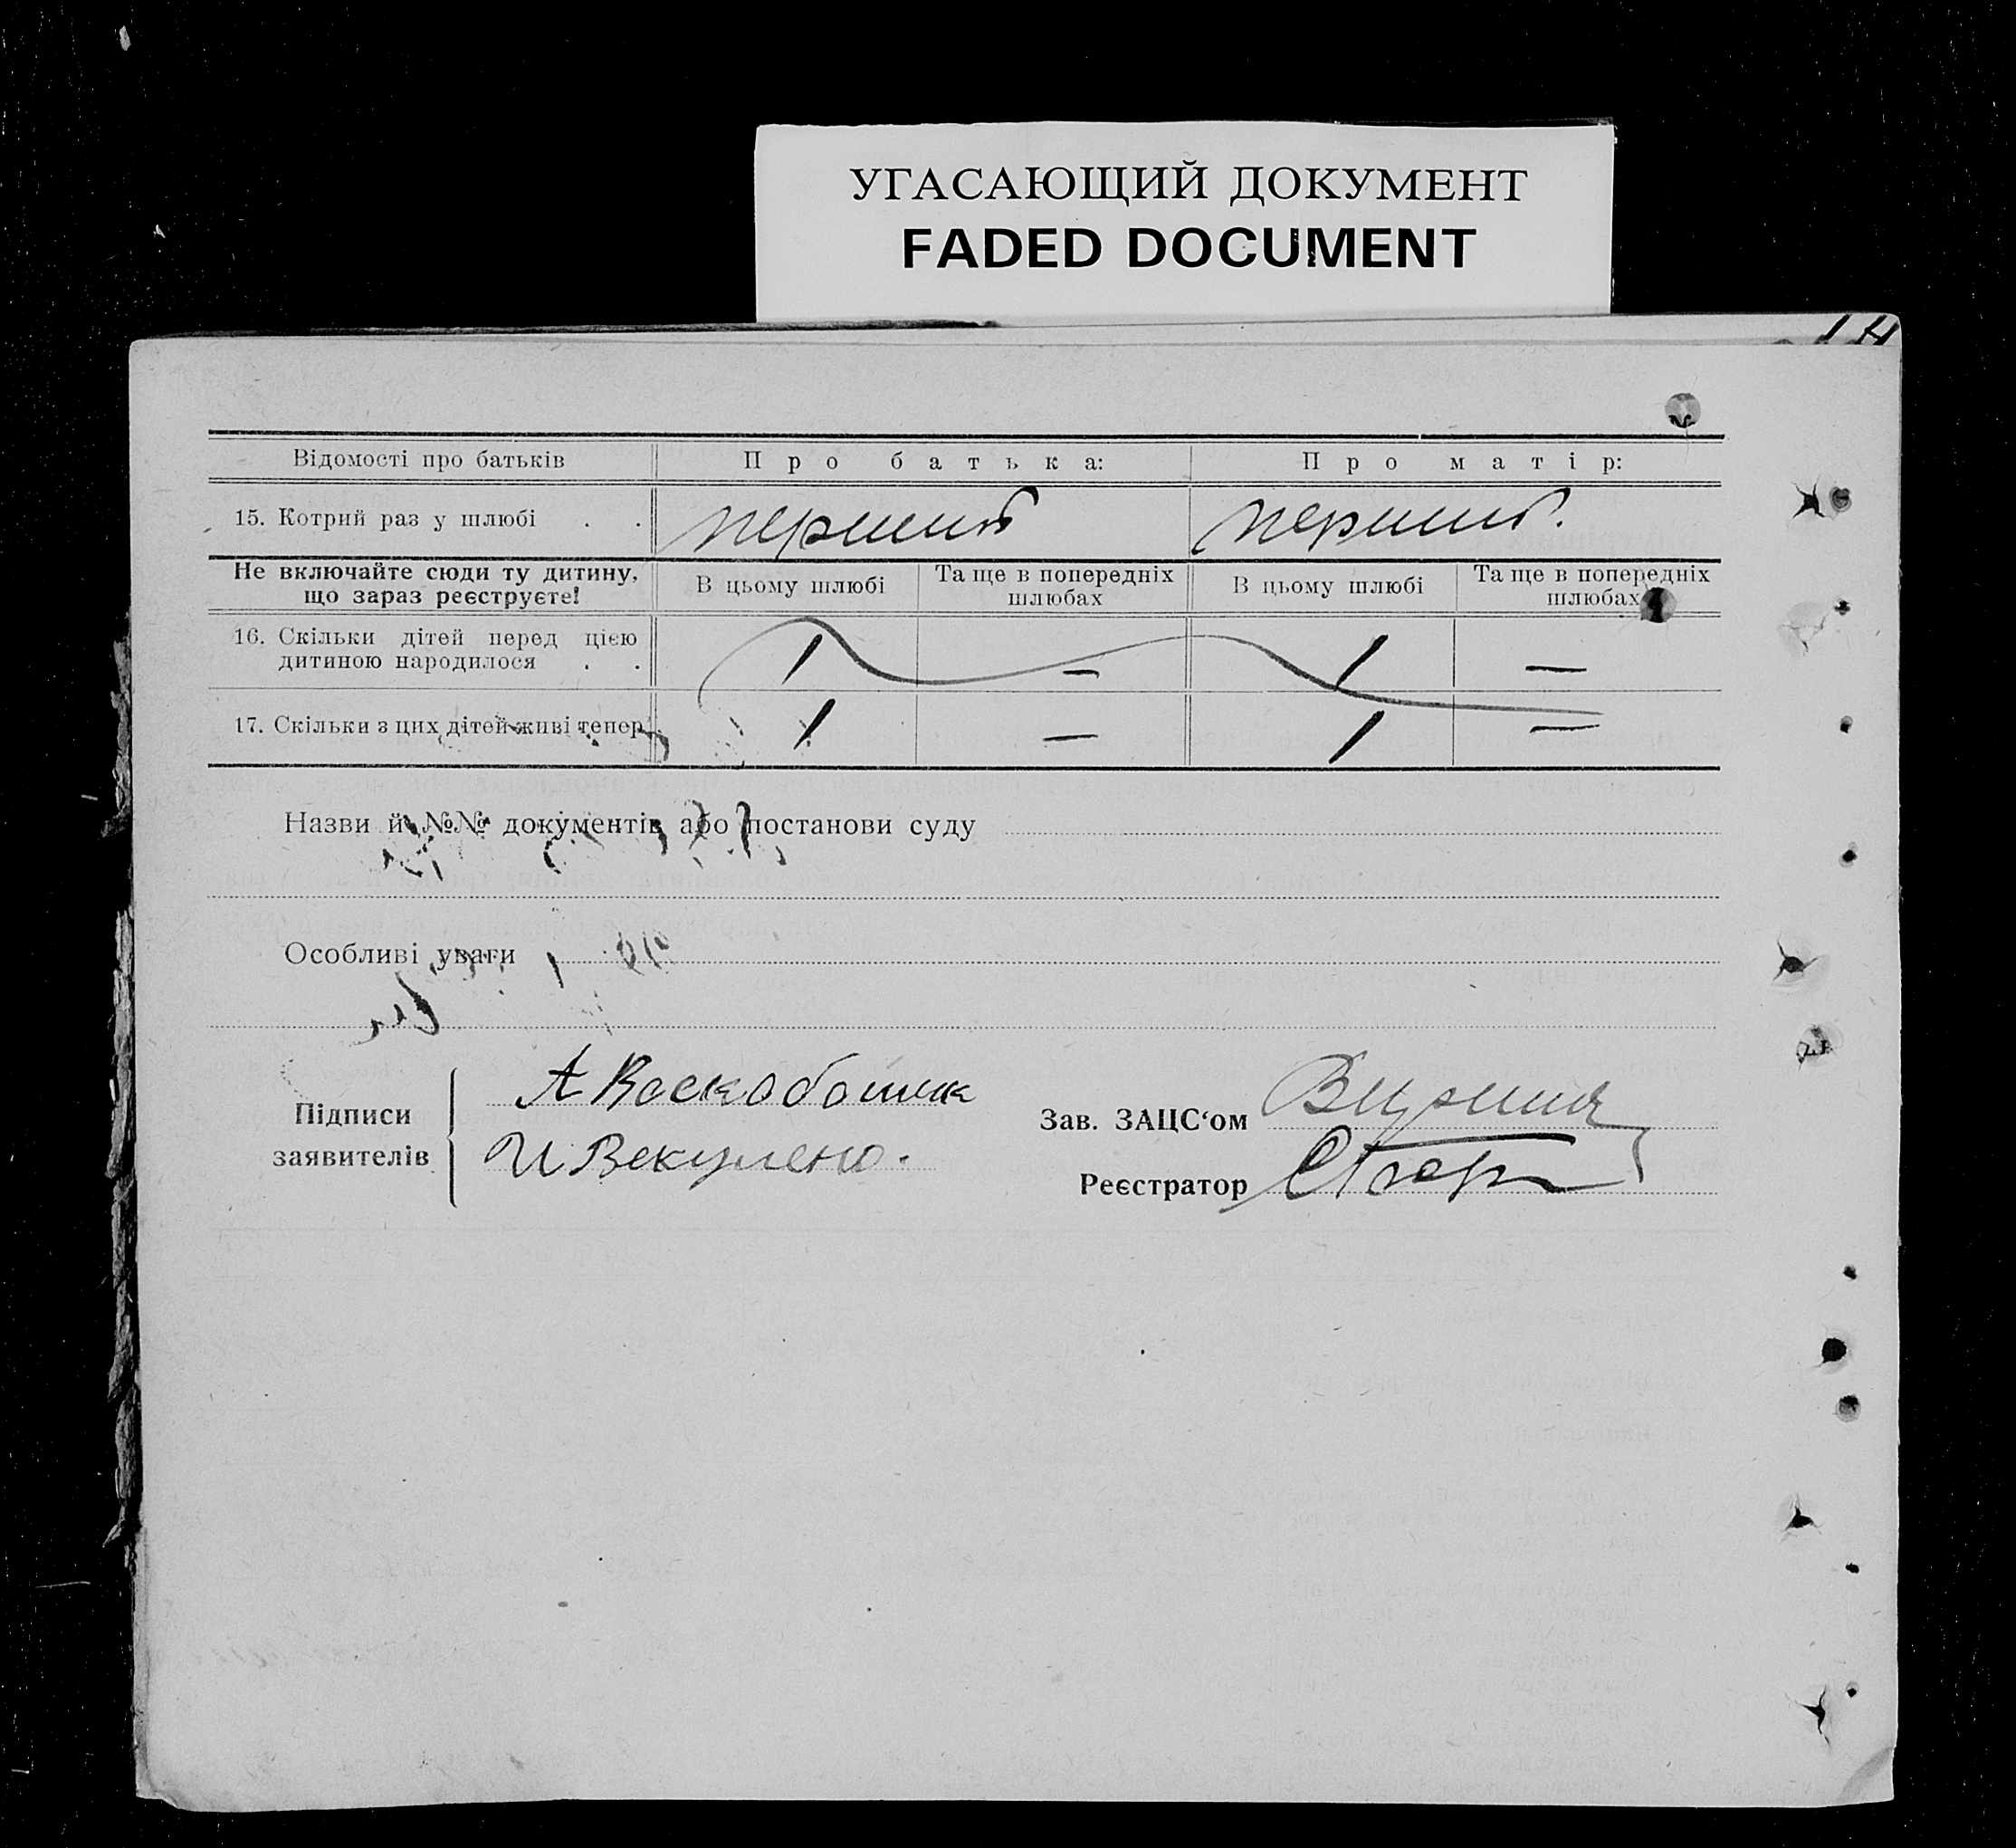 УГАСАЮЩИЙ ДОКУМЕНТ
FADED DOCUMENT
Відомості про батьків Про батька: Про матір:
15. Котрий раз у шлюбі . . первий первий.
Не включайте сюди ту дитину, що зараз реєструєте! В цьому шлюбі Та ще в попередніх шлюбах В цьому шлюбі Та ще в попередніх шлюбах
16. Скільки дітей перед цією
дитиною народилося . . 1 — 1 —
17. Скільки з цих дітей живі тепер 1 — 1 —
Назви й №№ документів або постанови суду
Особливі уваги
Підписи заявителів
А Васкобойник
Зав. ЗАЦС‘ом
Реєстратор